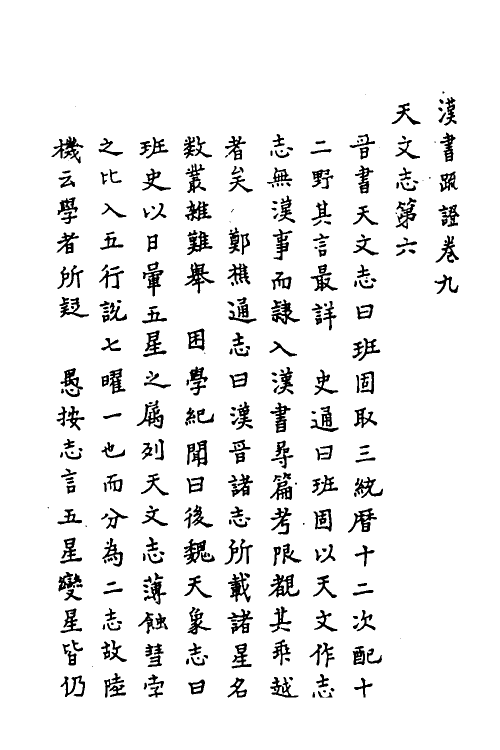 漢書疏證卷九
天文志第六
晉書天文志曰班固取三統曆十二次配十
二野其言最詳 史通曰班固以天文作志
志無漢事而隸入漢書尋篇考限覩其乖越
者矣 鄭樵通志曰漢晉諸志所載諸星名
数叢雜難舉 困學紀聞曰後魏天象志曰
班史以日暈五星之屬列天文志薄蝕彗孛
之比入五行說七曜一也而分為二志故陸
機云學者所疑 愚按志言五星變星皆仍